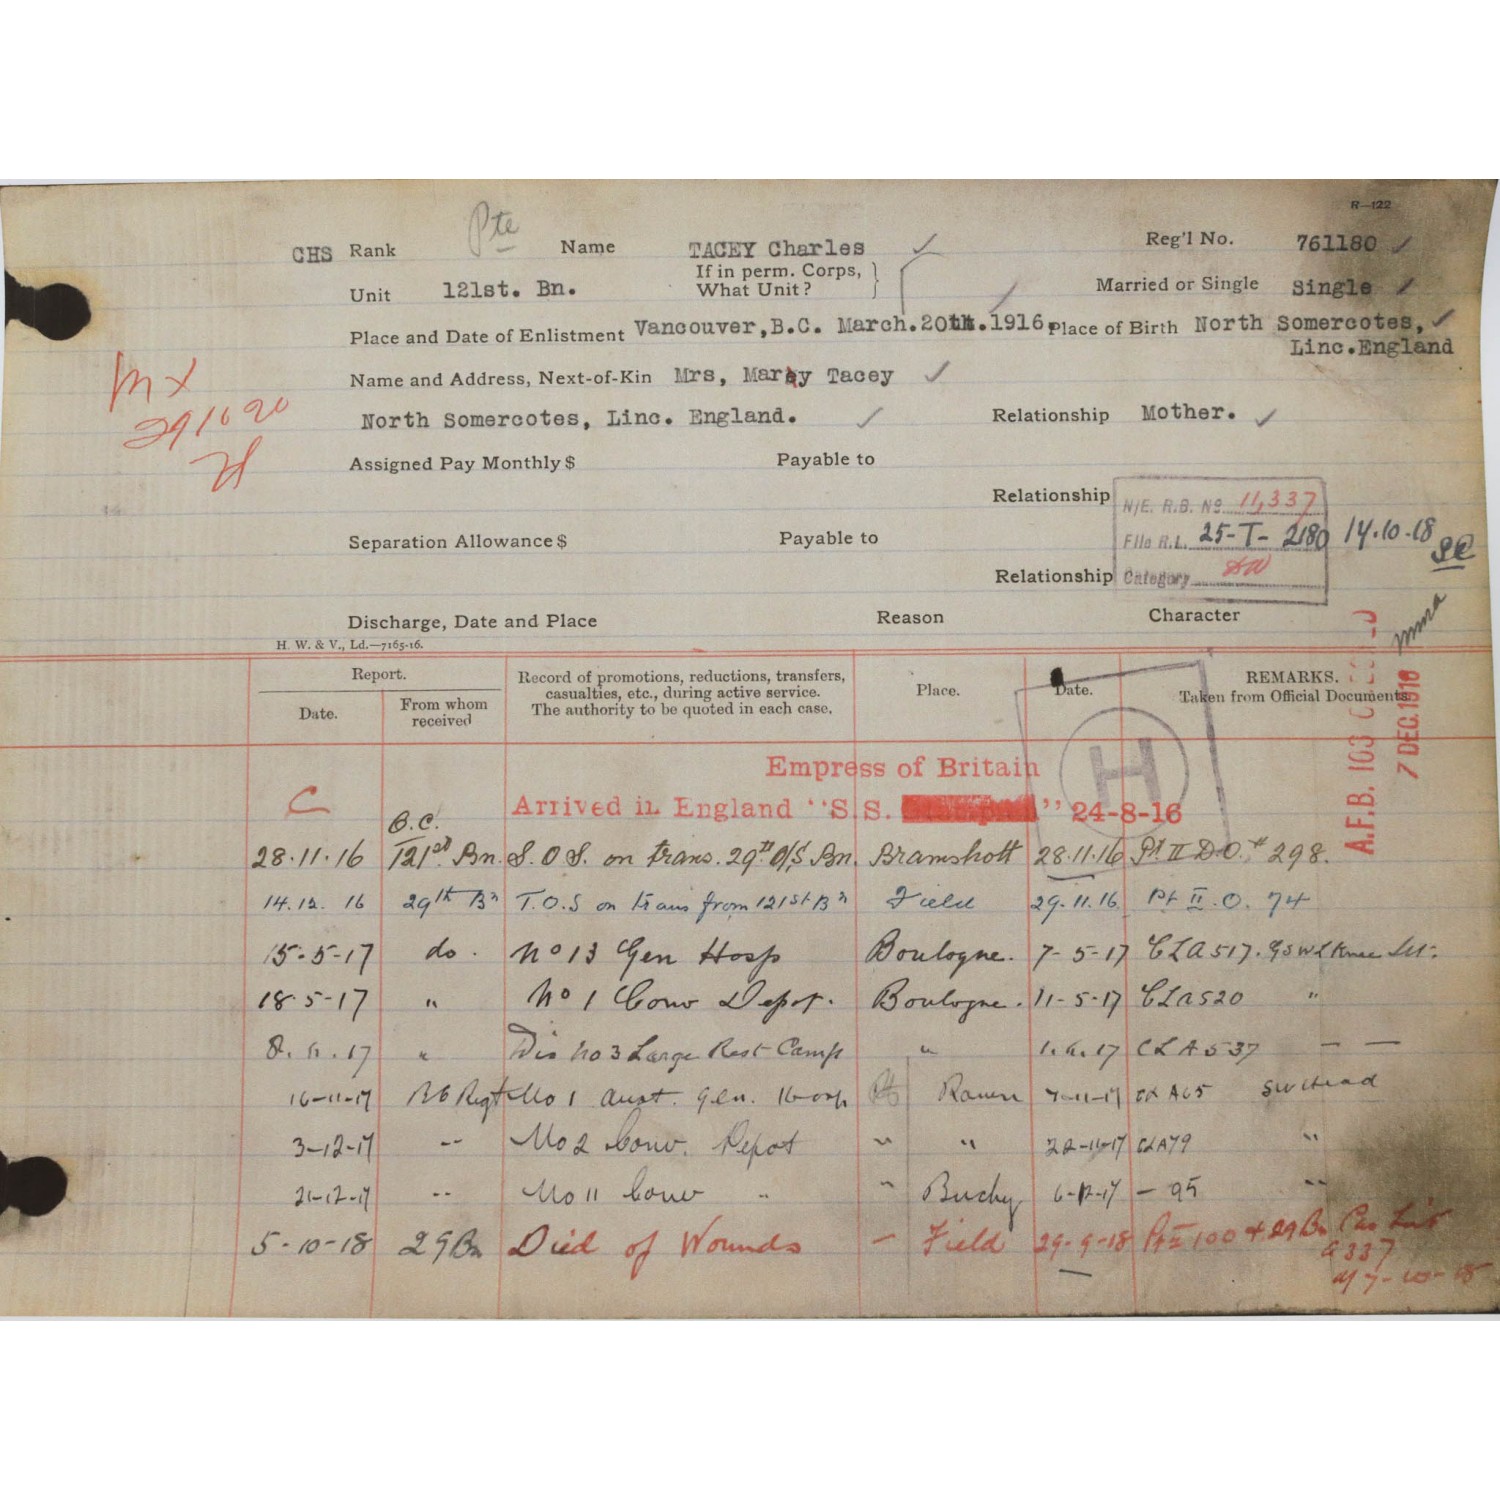 R—122
Pte
CHS Rank Name TACEY Charles Reg'l No. 761180
Unit 121st. Bn. If in perm. Corps, What Unit? Married or Single Single
Place and Date of Enlistment Vancouver, B.C. March. 20th. 1916. Place of Birth North Somercotes,
Linc. England
Name and Address, Next-of-Kin Mrs, Mary Tacey
North Somercotes, Linc. England. Relationship Mother.
291020
Assigned Pay Monthly $ Payable to
Relationship
N/E. R.B. No 11,337
Separation Allowance $ Payable to
File R.L. 25-T-2180 14.10.18
Relationship
Category DW
Discharge, Date and Place Reason Character
H. W. & V., Ld.—7165-16.
Report. Record of promotions, reductions, transfers, casualties, etc., during active service. The authority to be quoted in each case. Place. Date. REMARKS. Taken from Official Documents.
Date. From whom received
A.F.B. 103
7 DEC. 1918
H
Empress of Britain
C Arrived in England "S.S. " 24-8-16
B.C.
28.11.16 121st Bn. S.O.S. on trans. 29th O/S Bn. Bramshott 28.11.16 Pt II D.O. # 298.
14.12.16 29th Bn T.O.S on trans from 121st Bn Field 29.11.16 Pt II.O. 74
15-5-17 do. No 13 Gen Hosp Boulogne. 7-5-17 CLA517. GSW L Knee
18-5-17 " No 1 Conv Depot. Boulogne. 11-5-17 CLA520 "
8.6.17 " Dis No 3 Large Rest Camp " 1.6.17 CLA537 — —
16-11-17 BC Regt No 1 Aust. Gen. Hosp Rouen 7-11-17 CLA65 SW Head
3-12-17 -- No 2 Conv. Depot " " 22-11-17 CLA79 "
21-12-17 -- No 11 Conv " " Buchy 6-12-17 — 95 "
5-10-18 29Bn Died of Wounds — Field 29-9-18 Pt II 100 + 29 Bn Cas List
A 337
7-10-18